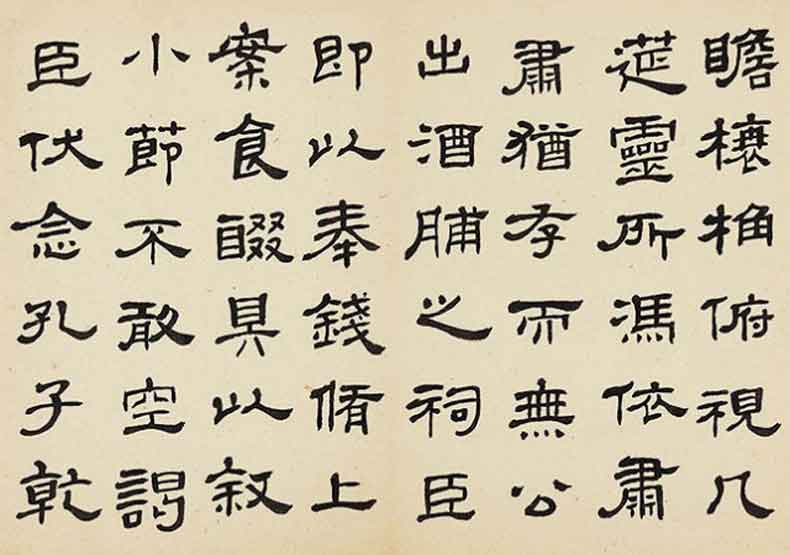 瞻榱桷俯視几
筵靈所馮依肅
肅猶存而無公
出酒脯之祠臣
即以奉錢脩上
案食醊具以叙
小節不敢空謁
臣伏念孔子乾